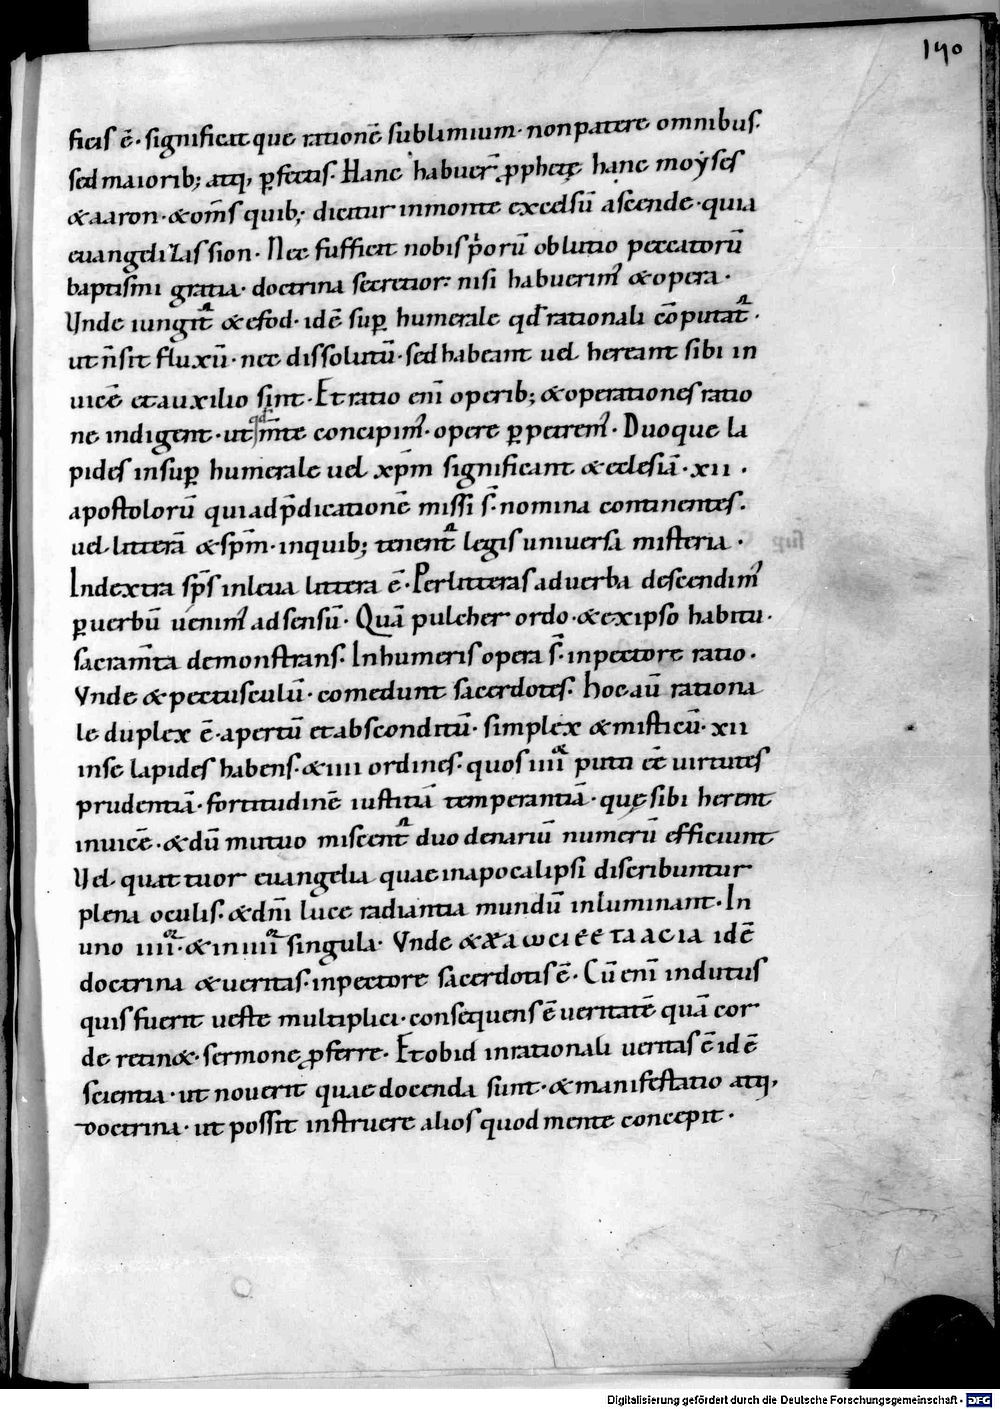 190
ficis ē· significatque rationē sublimium· non patere omnibus·
sed maiorib; atq, ꝑfectis· Hanc habuer̄ ꝓphetę hanc moẏses
& aaron· & om̄s quib; dicitur in monte excelsū ascende· quia
euangelizas sion· Nec sufficit nobis p̓orū oblitio peccatorū
baptismi gratia· doctrina secretior· nisi habuerim᾿ & opera·
Vnde iungit᷑ & efod· idē suꝑ humerale qđ rationali cōputat᷑·
ut n̄ sit fluxū· nec dissolutū· sed habeant uel hereant sibi in
uicē et auxilio sint· Et ratio eni᷑ operib; & operationes ratio
ne indigent· ut qđ m̄te concipim᾿· opere ꝑpetrem᾿· Duoque la
pides in suꝑ humerale uel xp̄m significant & eclesiā· xii·
apostolorū qui ad p̄dicationē missi s̄· nomina continentes·
uel litterā & sp̄m· in quib; tenent᷑ legis uniuersa misteria·
In dextra sp̄s in leua littera ē· Per litteras ad uerba descendim᾿
ꝑ uerbū uenim᾿ ad sensū· Quā pulcher ordo· & ex ipso habitu·
sacram̄ta demonstrans· In humeris opera s̄· in pectore ratio·
Vnde & pectusculū· comedunt sacerdotes· hoc aū rationa
le duplex ē· apertū et absconditū· simplex & misticū· xii
in se lapides habens· & iiii ordines· quos iiii᷑ puto eē uirtutes
prudentiā· fortitudinē iustitiā temperantiā· quę sibi herent
inuicē· & dū mutuo miscent᷑ duodenariū numerū efficiunt
Vel quattuor euangelia quae in apocalipsi discribuntur
plena oculis· & dn̄i luce radiantia mundū inluminant· In
uno iiii᷑· & in iiii᷑ singula· Vnde & idē
doctrina & ueritas· in pectore sacerdotis ē· Cū eni᷑ indutus
quis fuerit ueste multiplici· consequens ē ueritatē quā cor
de retin&· sermone ꝓferre· Et ob id in rationali ueritas ē idē
scientia· ut nouerit quae docenda sunt· & manifestatio atq,
doctrina· ut possit instruere alios quod mente concepit·
Digitalisierung gefördert durch die Deutsche Forschungsgemeinschaft · DFG